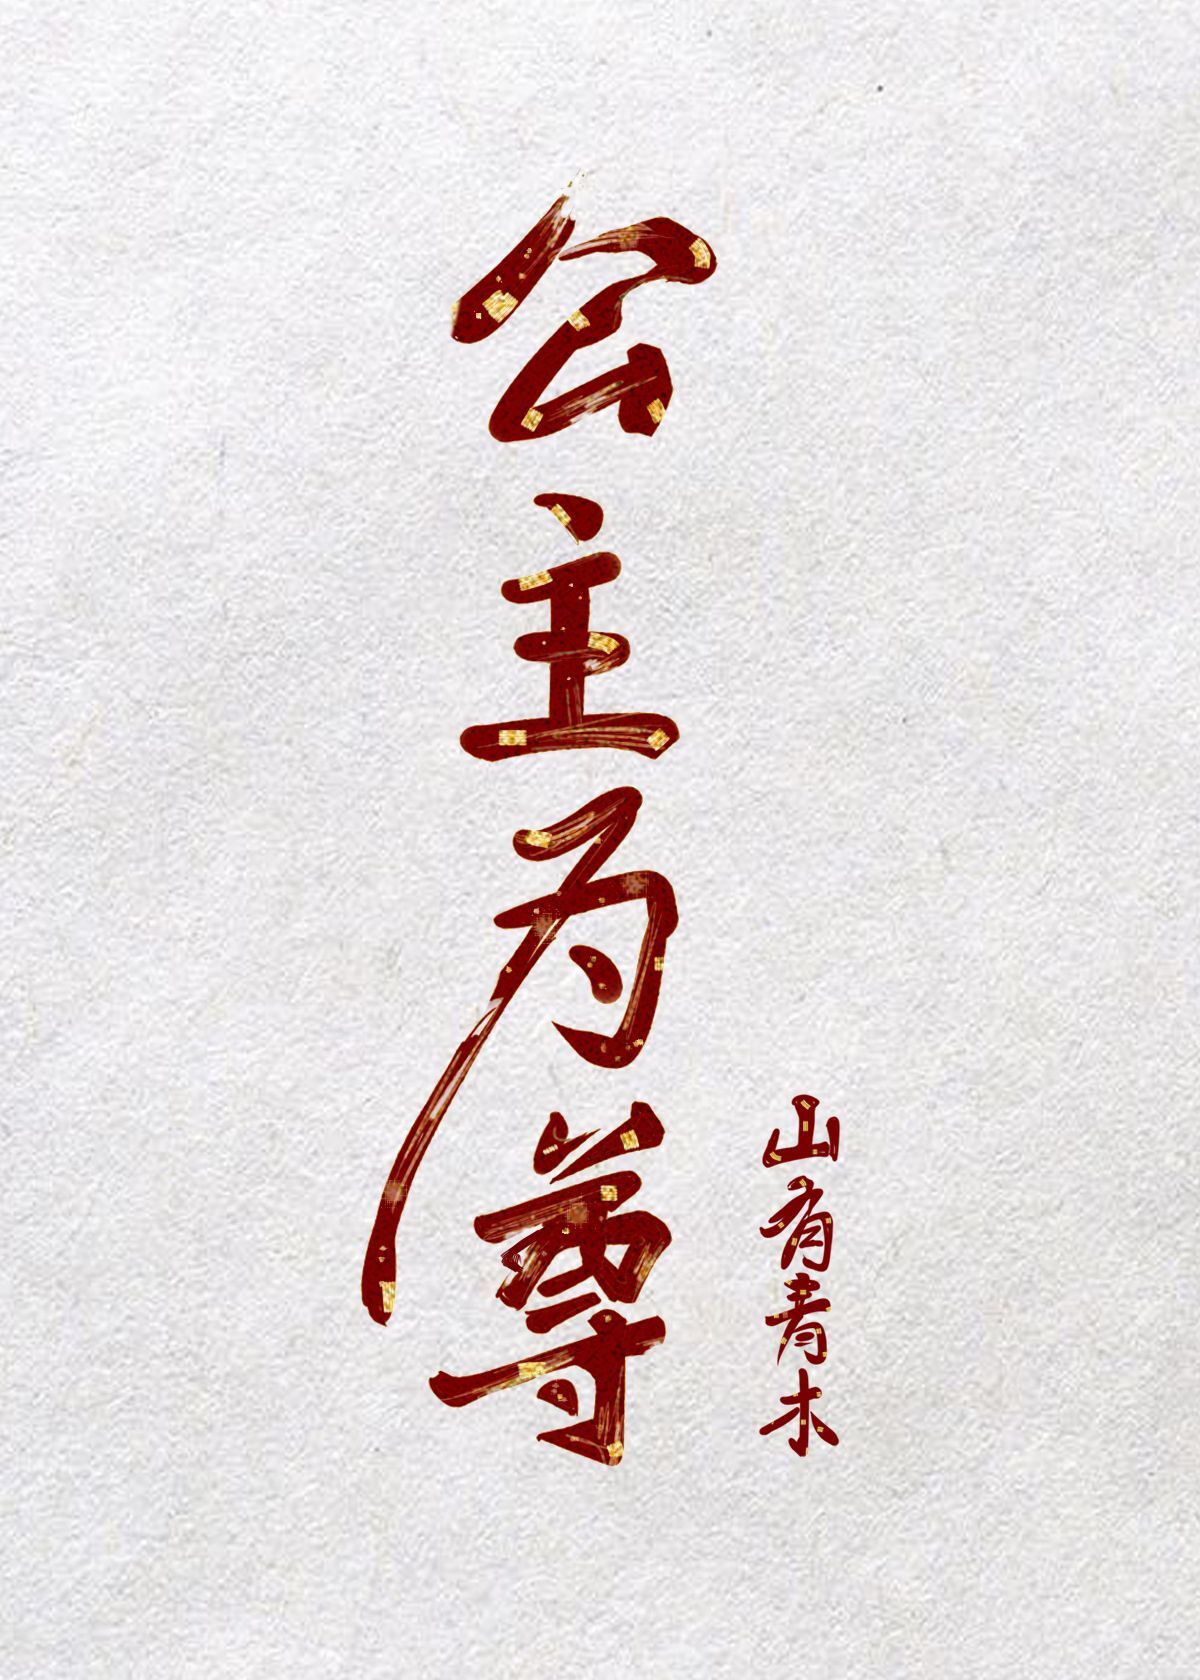 公主为尊
山有青木